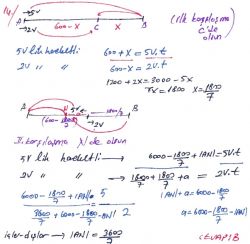 14/
→5V
600-x
x
A C B
→2V
(ilk karşılaşma
C'de
olsun)
5V lik hareketli : 600+x = 5V.t
2V " " 600-x 2V.t
1200+2x=3000-5x
7x=1800 x=1800/7
A N B
→2V
II. karşılaşma N'de olsun
5V lik hareketli → 6000-1800/7+|AN|=5V.t
2V " " → 1800/7+1800/7+a = 2V.t
6000-1800/7+|AN| = 5
3600/7+600-|AN| 2
|AN|+a=600-1800/7
a=600-1800/7-|AN|
içler-dışlar → |AN|=3600/7
CEVAP:B